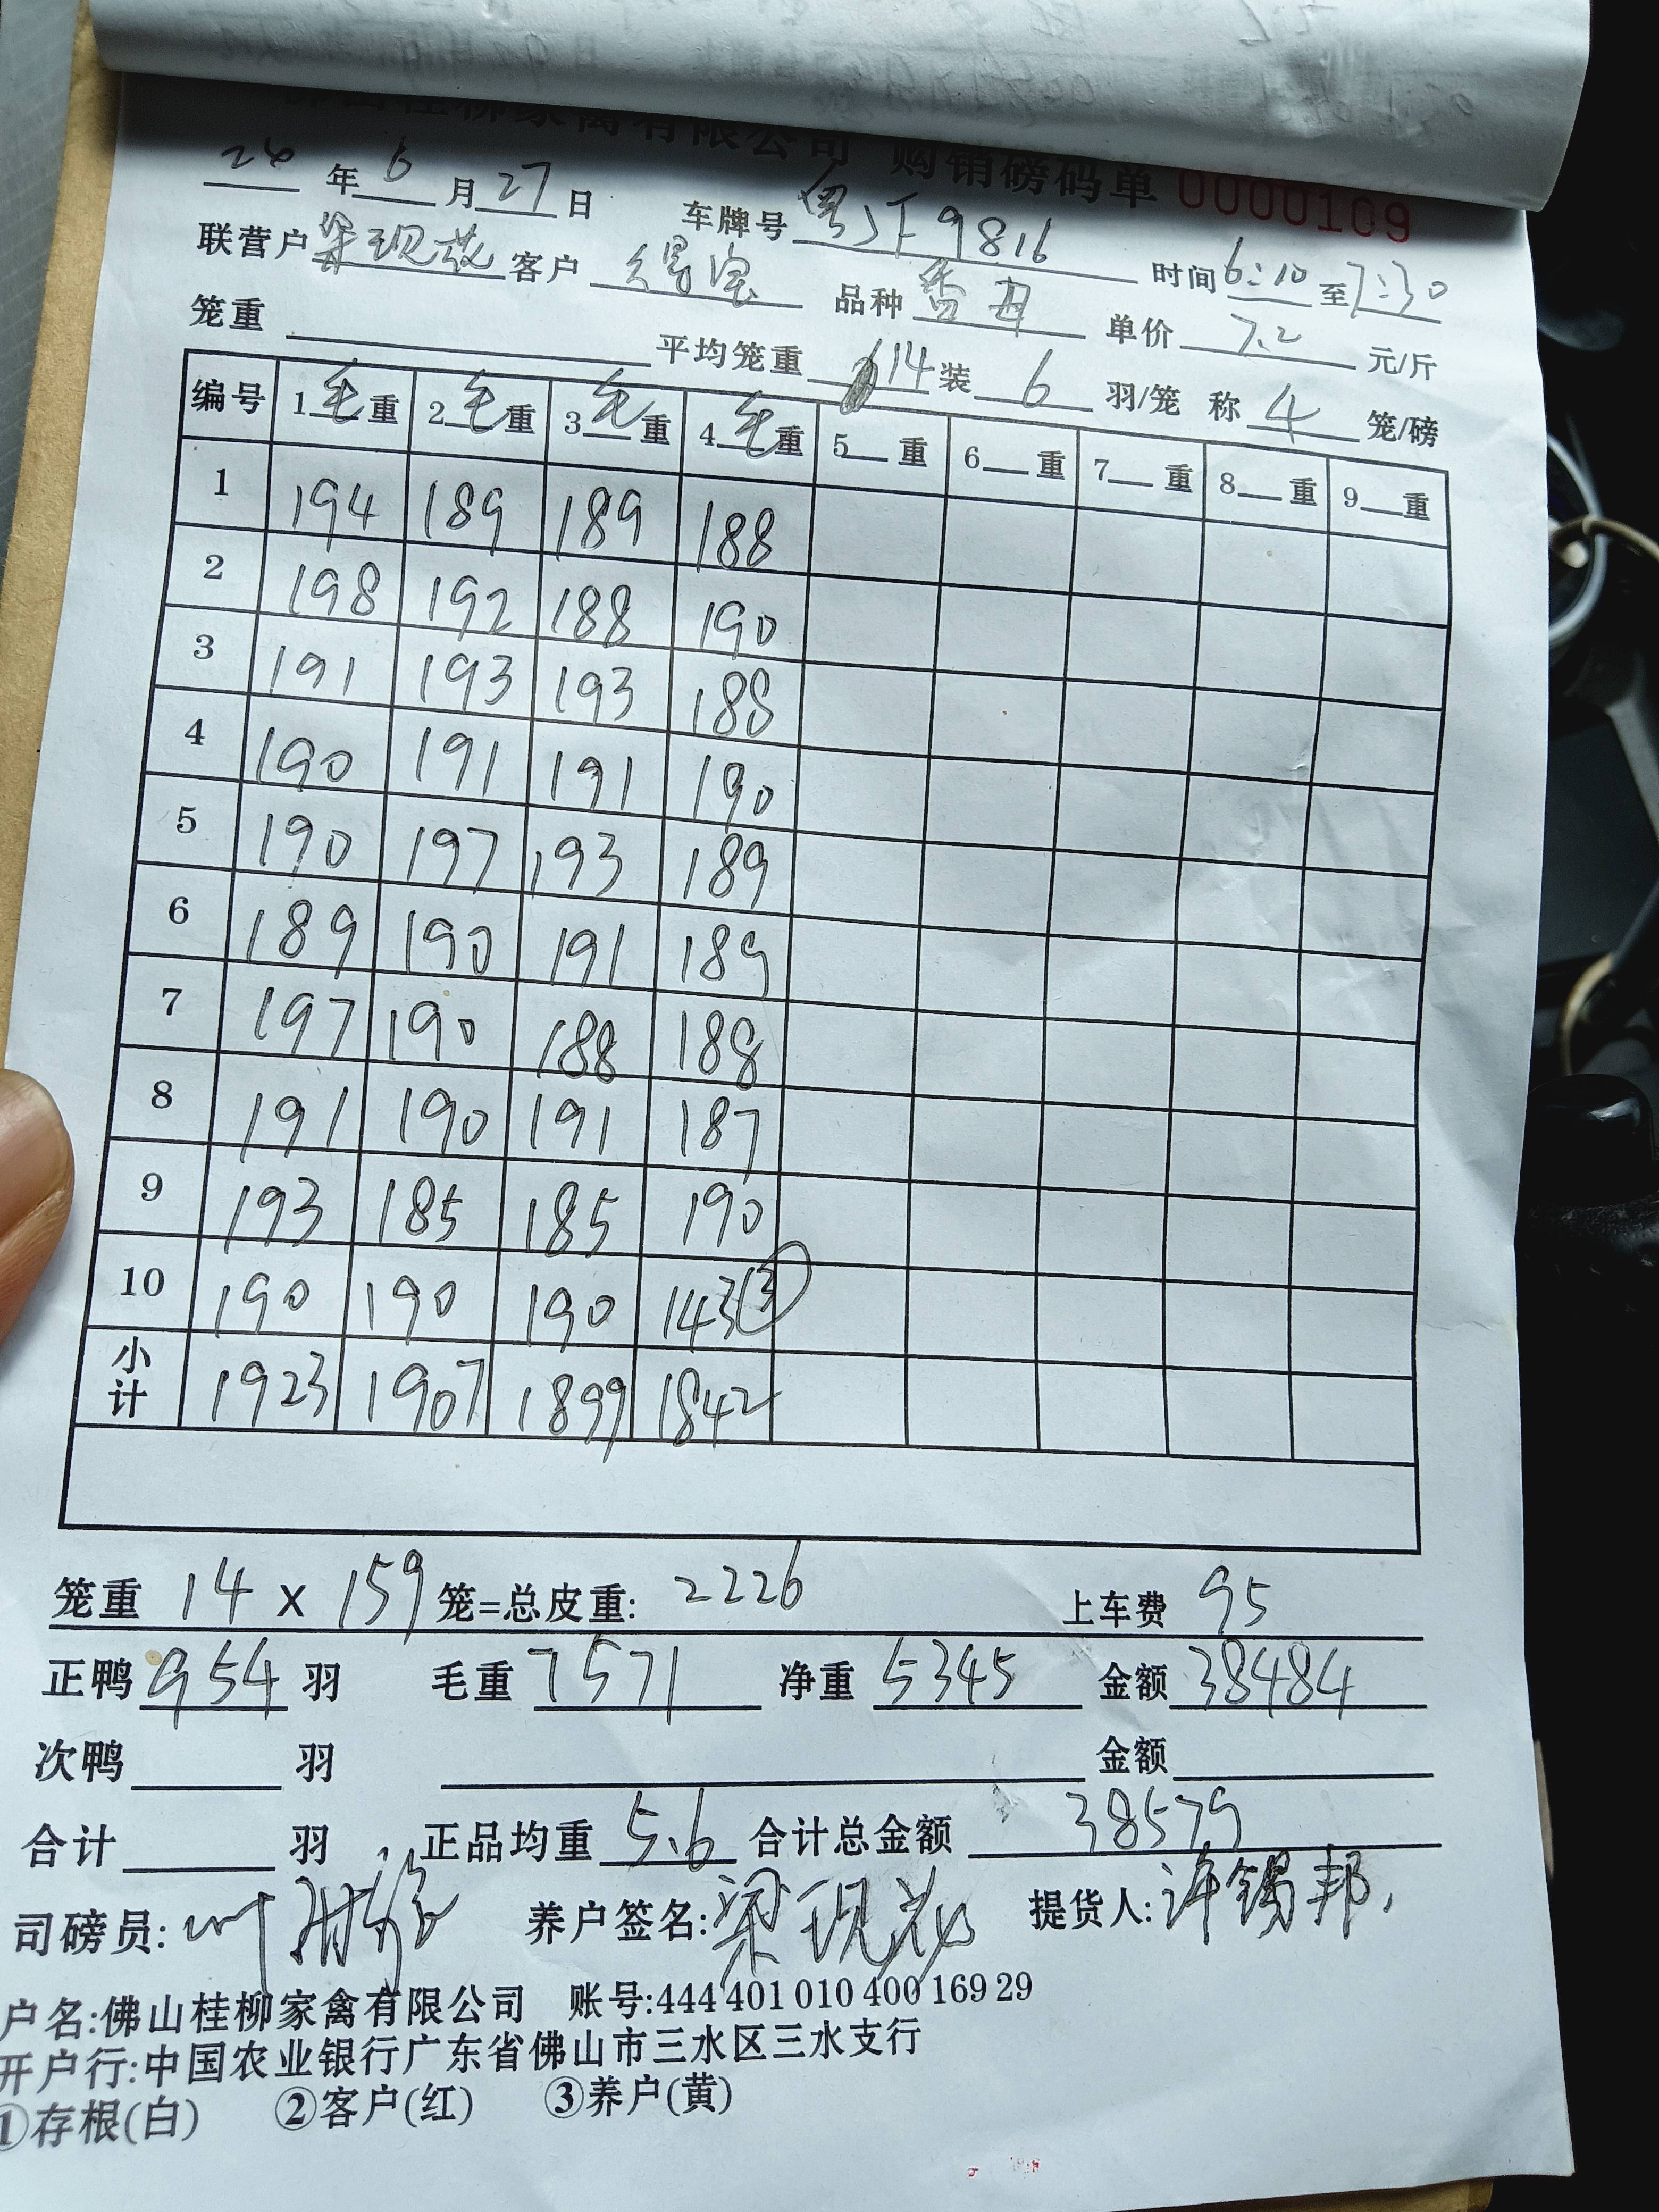 佛山桂柳家禽有限公司 购销磅码单 0000109
年6月27日 车牌号 粤J F9816 时间6:10至7:30
联营户梁现 客户 得宝 品种 单价 7.2 元/斤
笼重 平均笼重 14 装 6 羽/笼 称 4 笼/磅
编号 1毛重 2毛重 3毛重 4毛重 5重 6重 7重 8重 9重
1 194 189 189 188
2 198 192 188 190
3 191 193 193 188
4 190 191 191 190
5 190 197 193 189
6 189 190 191 189
7 197 190 188 188
8 191 190 191 187
9 193 185 185 190
10 190 190 190 143③
小计 1923 1907 1899 1842
笼重 14 × 159 笼=总皮重: 2226 上车费 95
正鸭 954 羽 毛重 7571 净重 5345 金额 38484
次鸭 羽 金额
合计 羽 正品均重 5.6 合计总金额 38579
司磅员: 叶 养户签名: 梁现 提货人: 许锡邦
户名:佛山桂柳家禽有限公司 账号:444 401 010 400 169 29
开户行:中国农业银行广东省佛山市三水区三水支行
①存根(白) ②客户(红) ③养户(黄)